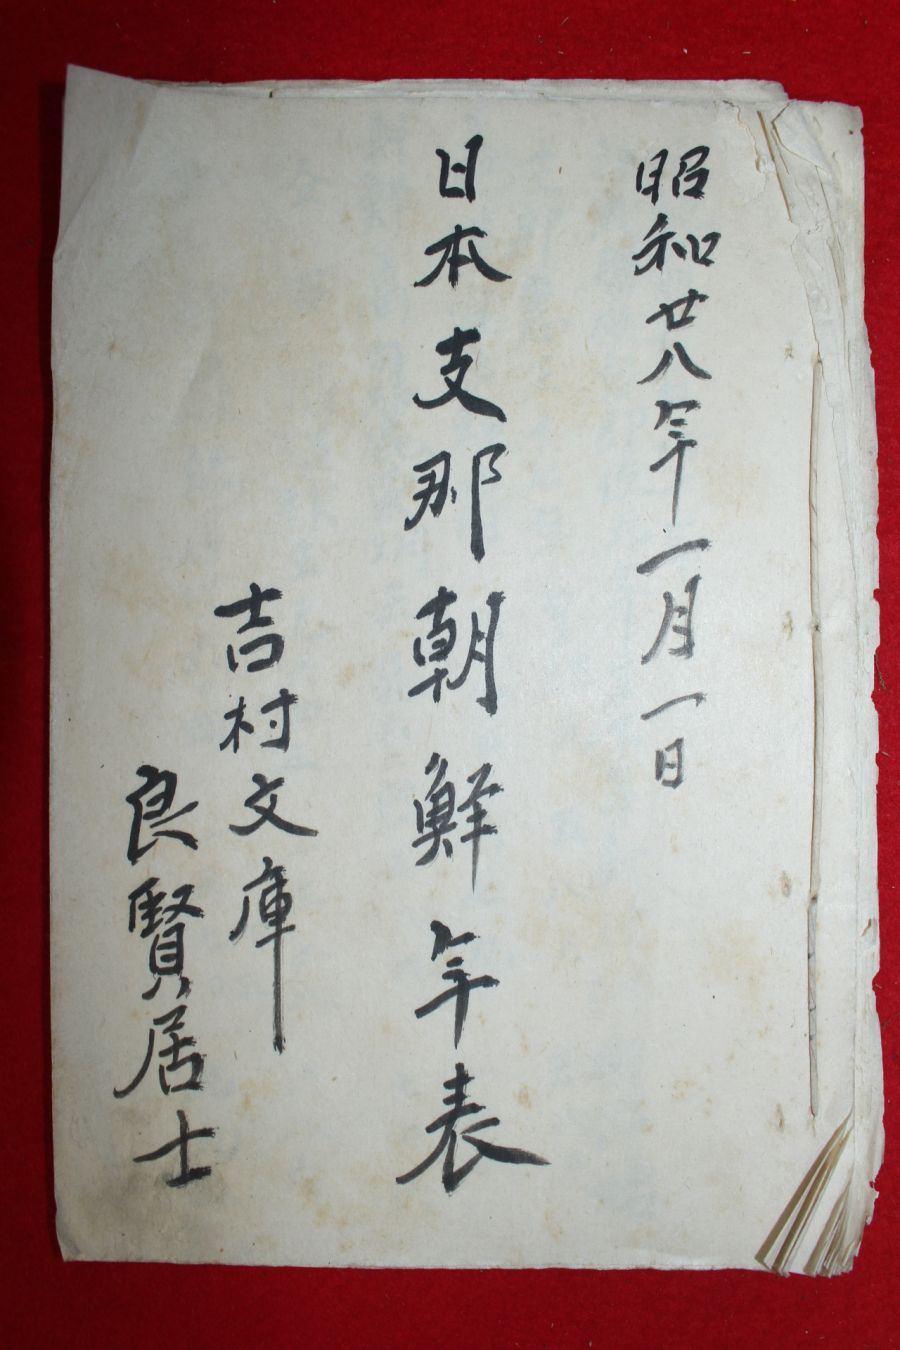 昭和廿八年一月一日
日本支那朝鮮年表
吉村文庫
良賢居士